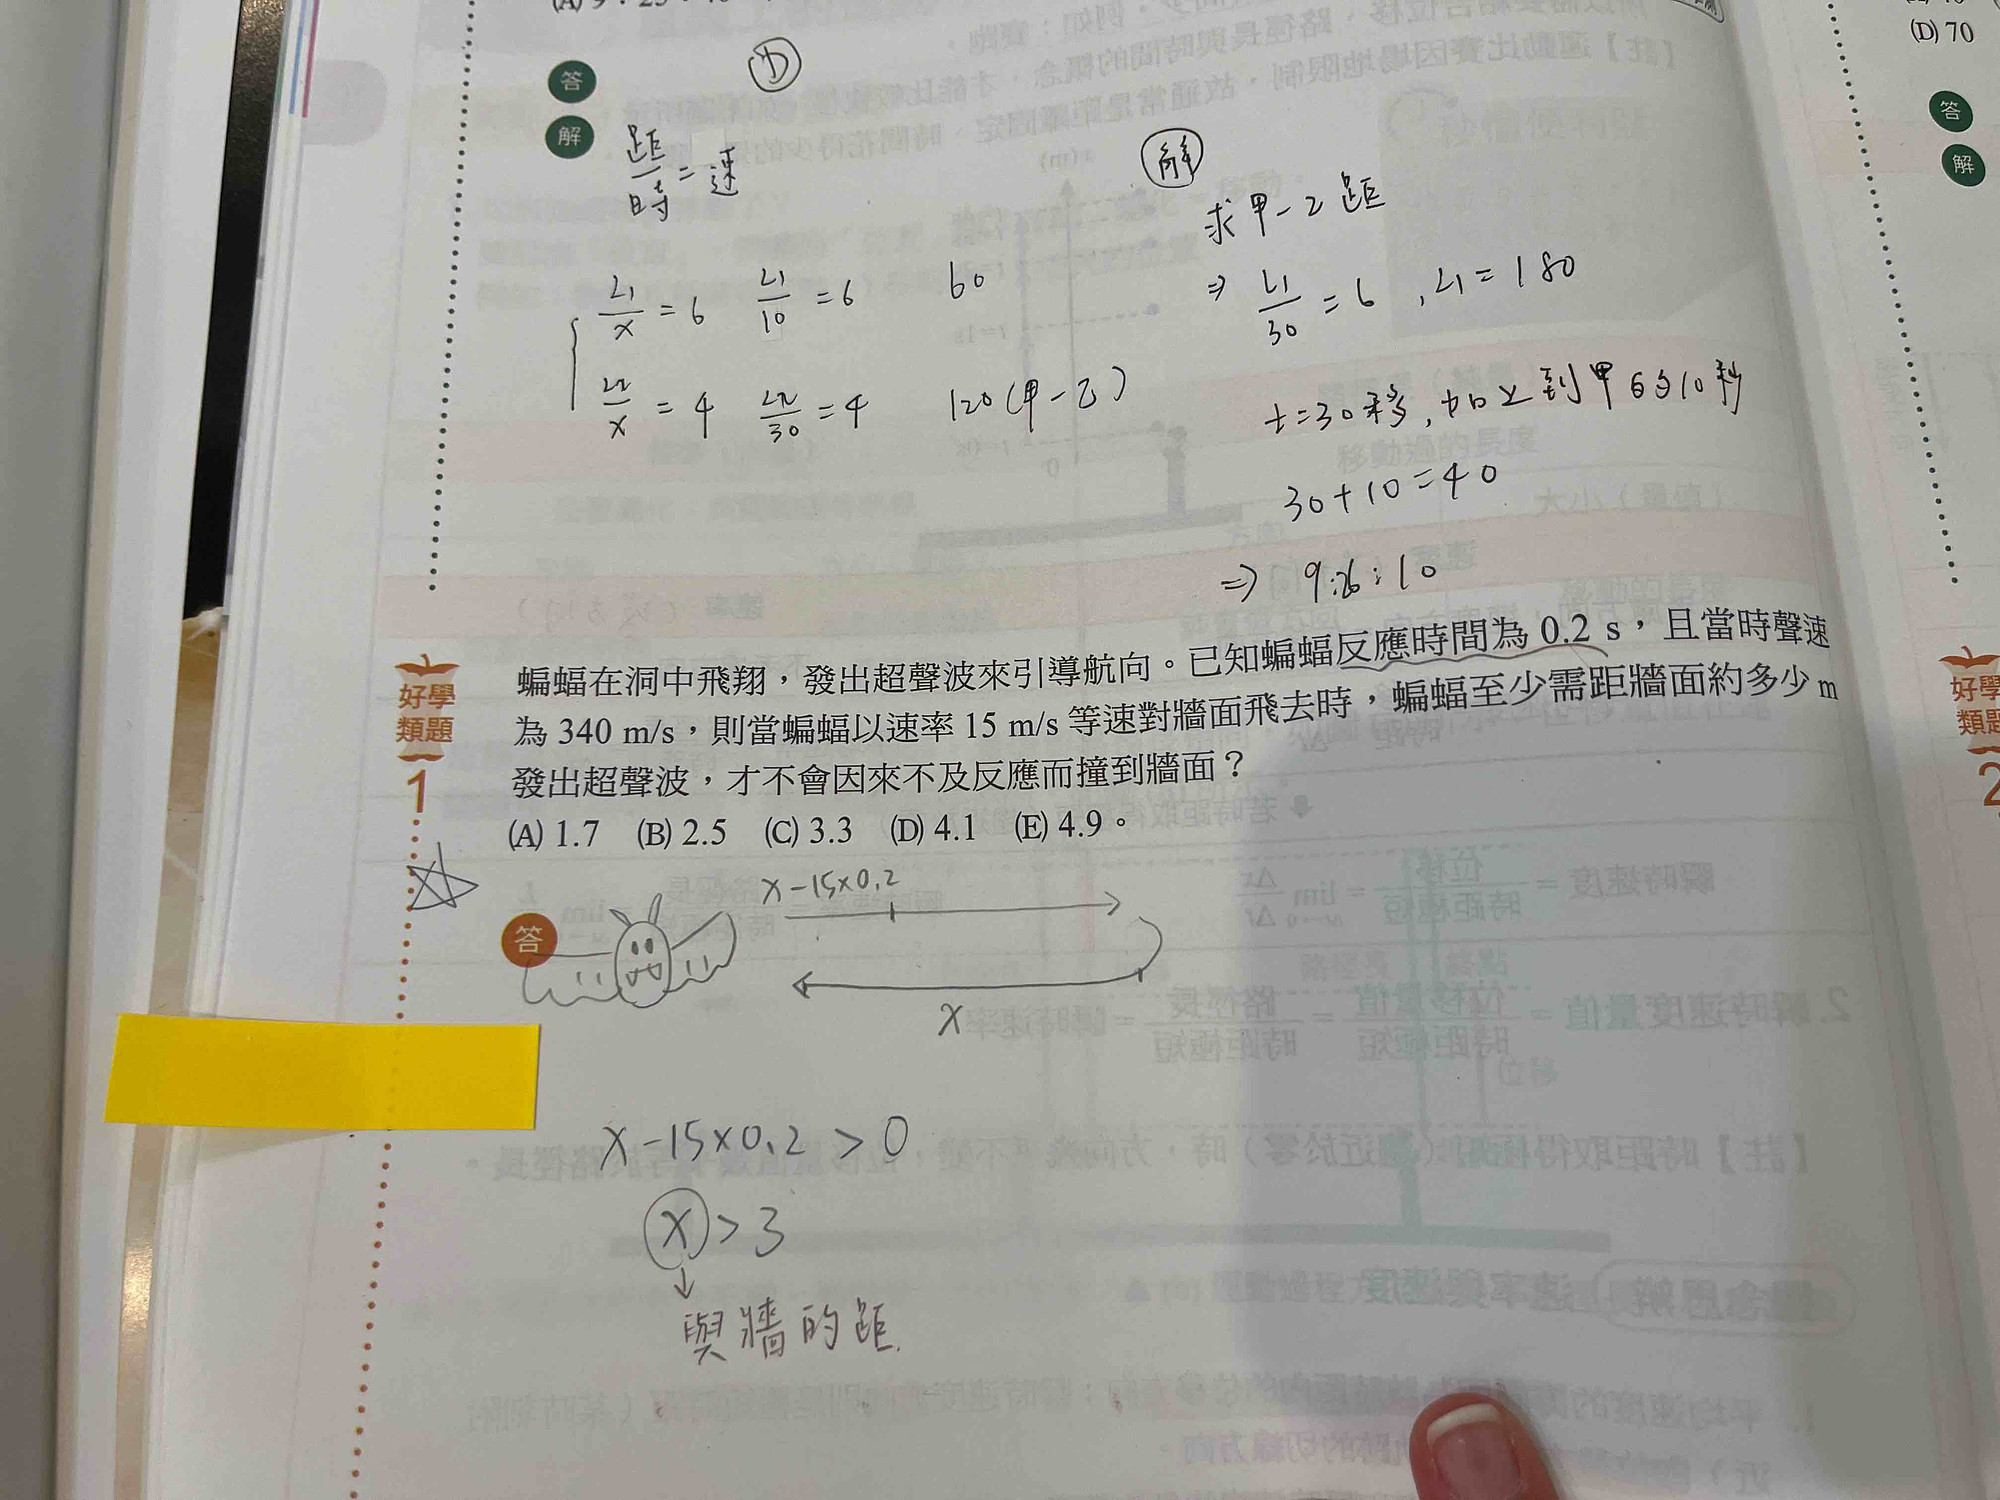 (D) 70
答
解
答
D
解
距/時 = 速
解
求甲-乙距
L1/x = 6 L1/10 = 6 60
⇒ L1/30 = 6 , L1 = 180
L2/x = 4 L2/30 = 4 120(甲-乙)
t = 30秒, 加乙到甲的10秒
30+10=40
⇒ 9:26:10
好學類題 1
蝙蝠在洞中飛翔，發出超聲波來引導航向。已知蝙蝠反應時間為 0.2 s，且當時聲速
為 340 m/s，則當蝙蝠以速率 15 m/s 等速對牆面飛去時，蝙蝠至少需距牆面約多少 m
發出超聲波，才不會因來不及反應而撞到牆面？
(A) 1.7 (B) 2.5 (C) 3.3 (D) 4.1 (E) 4.9。
答
x-15×0.2
x
x-15×0.2 > 0
x > 3
↓
與牆的距
好學
類題
2